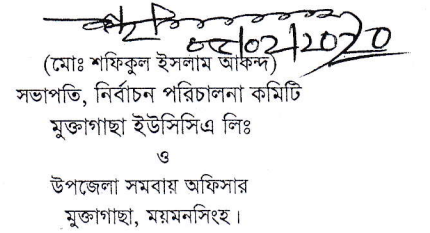 ০৫/০২/2020
(মোঃ শফিকুল ইসলাম আকন্দ)
সভাপতি, নির্বাচন পরিচালনা কমিটি
মুক্তাগাছা ইউসিসিএ লিঃ
ও
উপজেলা সমবায় অফিসার
মুক্তাগাছা, ময়মনসিংহ।